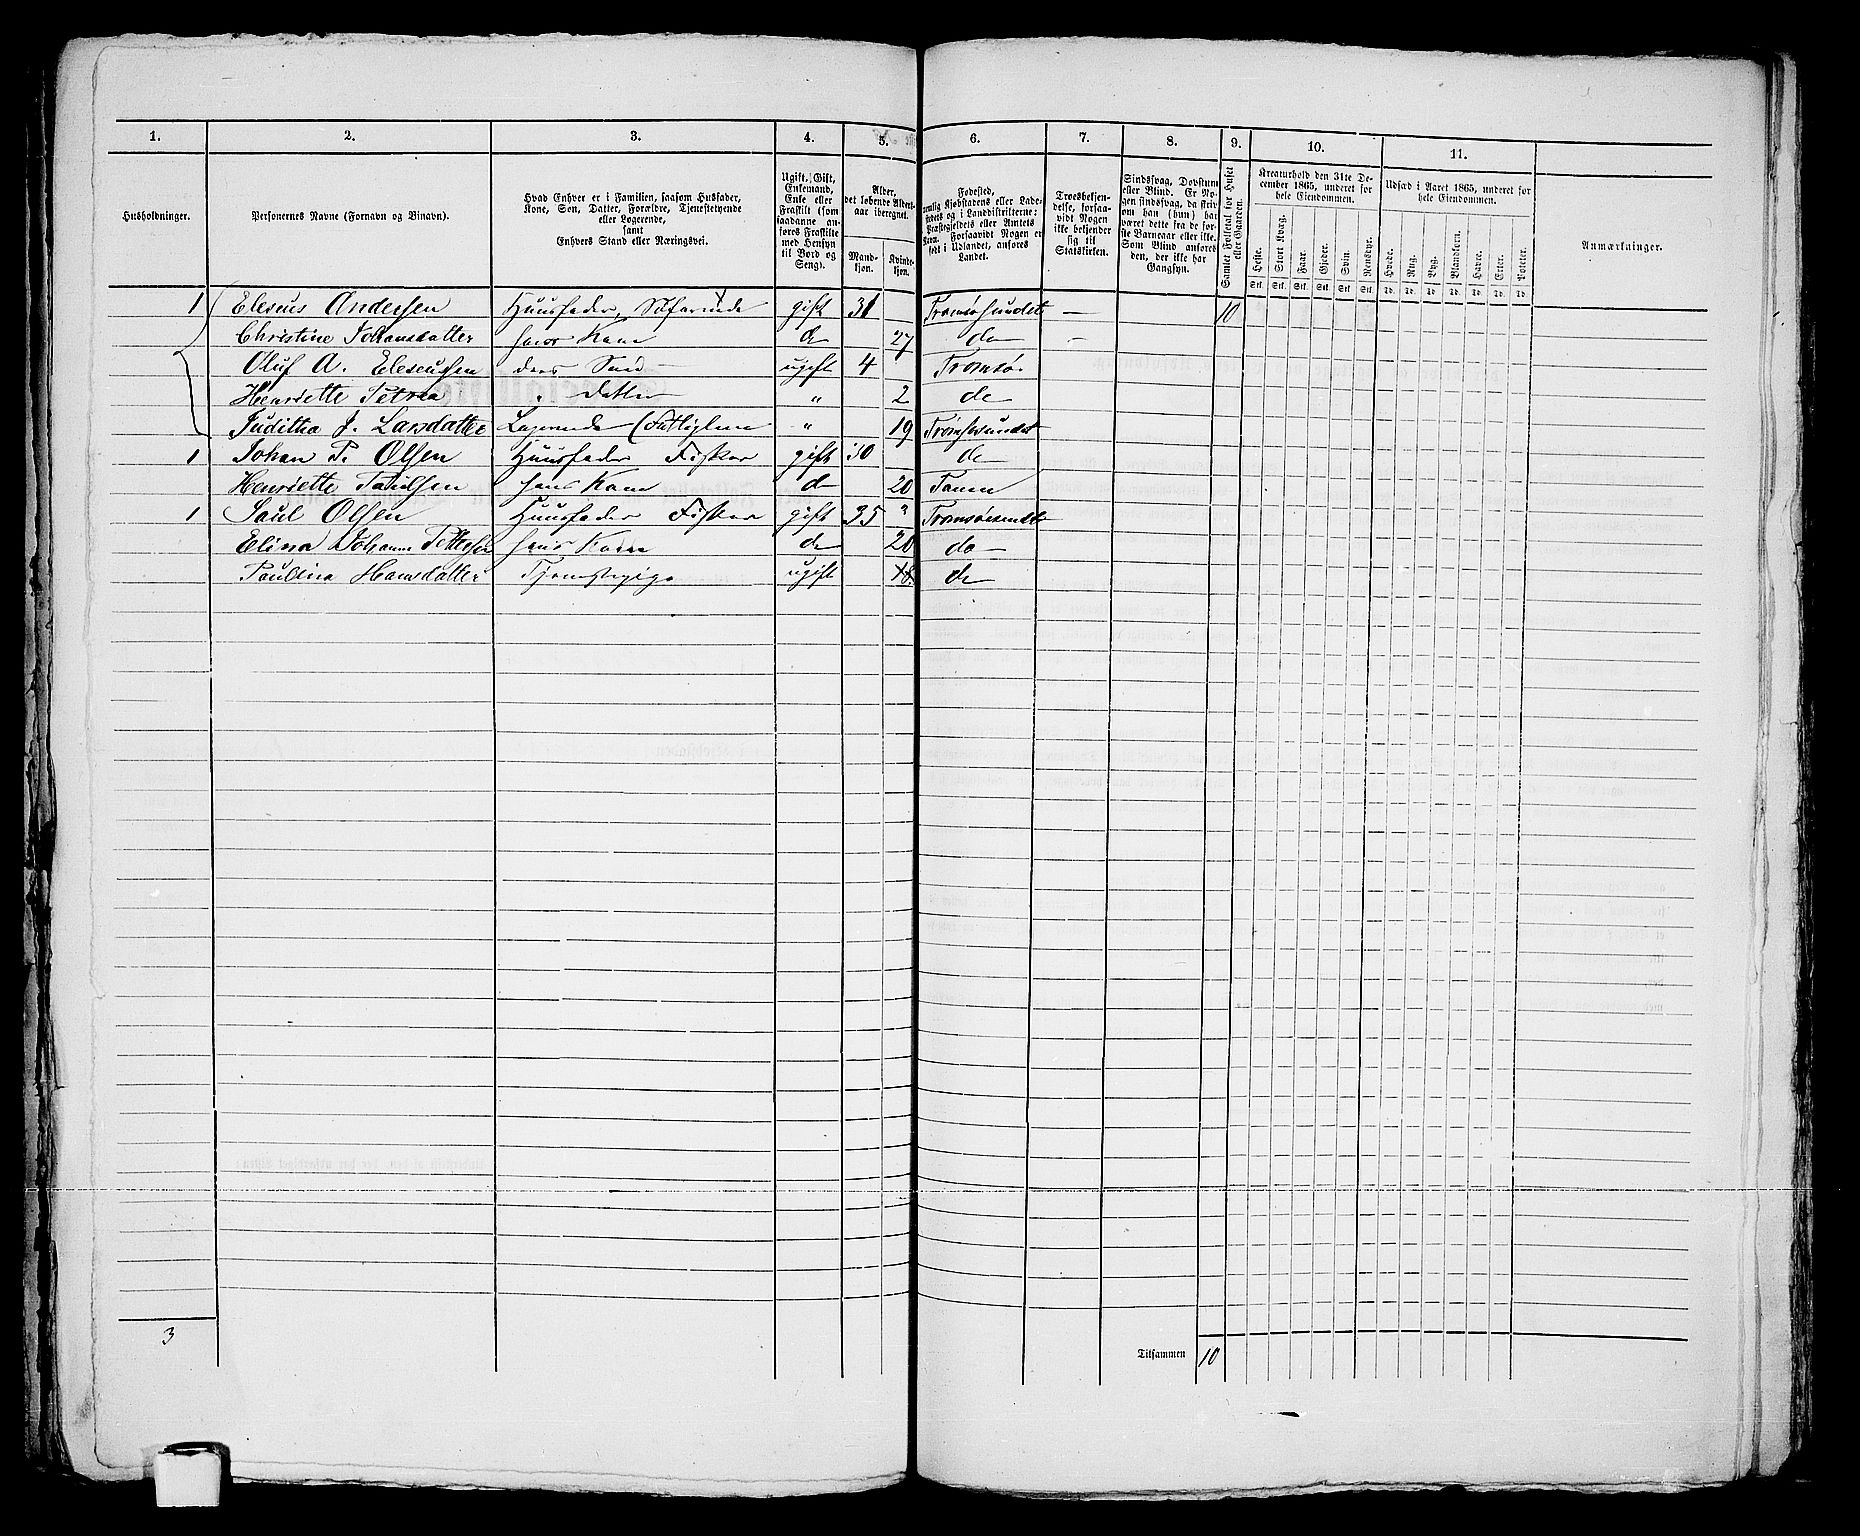 1. 2. 3. 4. 5. 6. 7. 8. 9. 10. 11.
Husholdninger.
Personernes Navne (Fornavn og Binavn).
Hvad Enhver er i Familien, saasom Husfader,
Kone, Søn, Datter, Forældre, Tjenestetyende
eller Logerende,
samt
Enhvers Stand eller Næringsvei.
Ugift, Gift,
Enkemand,
Enke eller
Fraskilt (som
saadanne an-
føres Fraskilte
med Hensyn
til Bord og
Seng).
Alder,
det løbende Alders-
aar iberegnet.
Mand-
kjøn.
Kvinde-
kjøn.
Fødested,
nemlig Kjøbstadens eller Lade-
stedets og i Landdistrikterne:
Præstegjeldets eller Amtets
Navn. Forsaavidt Nogen er
født i Udlandet, anføres
Landet.
Troesbekjen-
delse, forsaa-
vidt Nogen
ikke bekjender
sig til
Statskirken.
Sindssvag, Døvstum
eller Blind. Er No-
gen sindssvag, da skriv
om han (hun) har
været dette fra de før-
ste Barneaar eller ikke.
Som Blind anføres
den, der ikke har
Gangsyn.
Samlet Folketal for Huset
eller Gaarden.
Kreaturhold den 31te De-
cember 1865, underet for
hele Eiendommen.
Heste. Stort Kvæg. Faar. Gjeder. Svin. Rensdyr.
Stk. Stk. Stk. Stk. Stk. Stk.
Udsæd i Aaret 1865, underet for
hele Eiendommen.
Hvede. Rug. Byg. Blandkorn. Havre. Erter. Poteter.
Td. Td. Td. Td. Td. Td. Td.
Anmærkninger.
1 Eleseus Andersen Huusfader, Søfarende gift 31 Tromsøsundet — 10
Christine Johansdatter hans Kone do 27 do —
Oluf A. Eleseussen deres Søn ugift 4 Tromsø
Henriette Petrea " datter " 2 do
Juditha J. Larsdatter Logerende " 19 Tromsøsundet
1 Johan P. Olsen Huusfader Fisker gift 30 do
Henriette Paulsen hans Kone do 20 Tanen
1 Paul Olsen Huusfader Fisker gift 35 " Tromsøesundet
Elina Johanne Pettersen hans Kone do 20 do
Paulina Hansdatter Tjenestepige ugift 18 do
3
Tilsammen 10